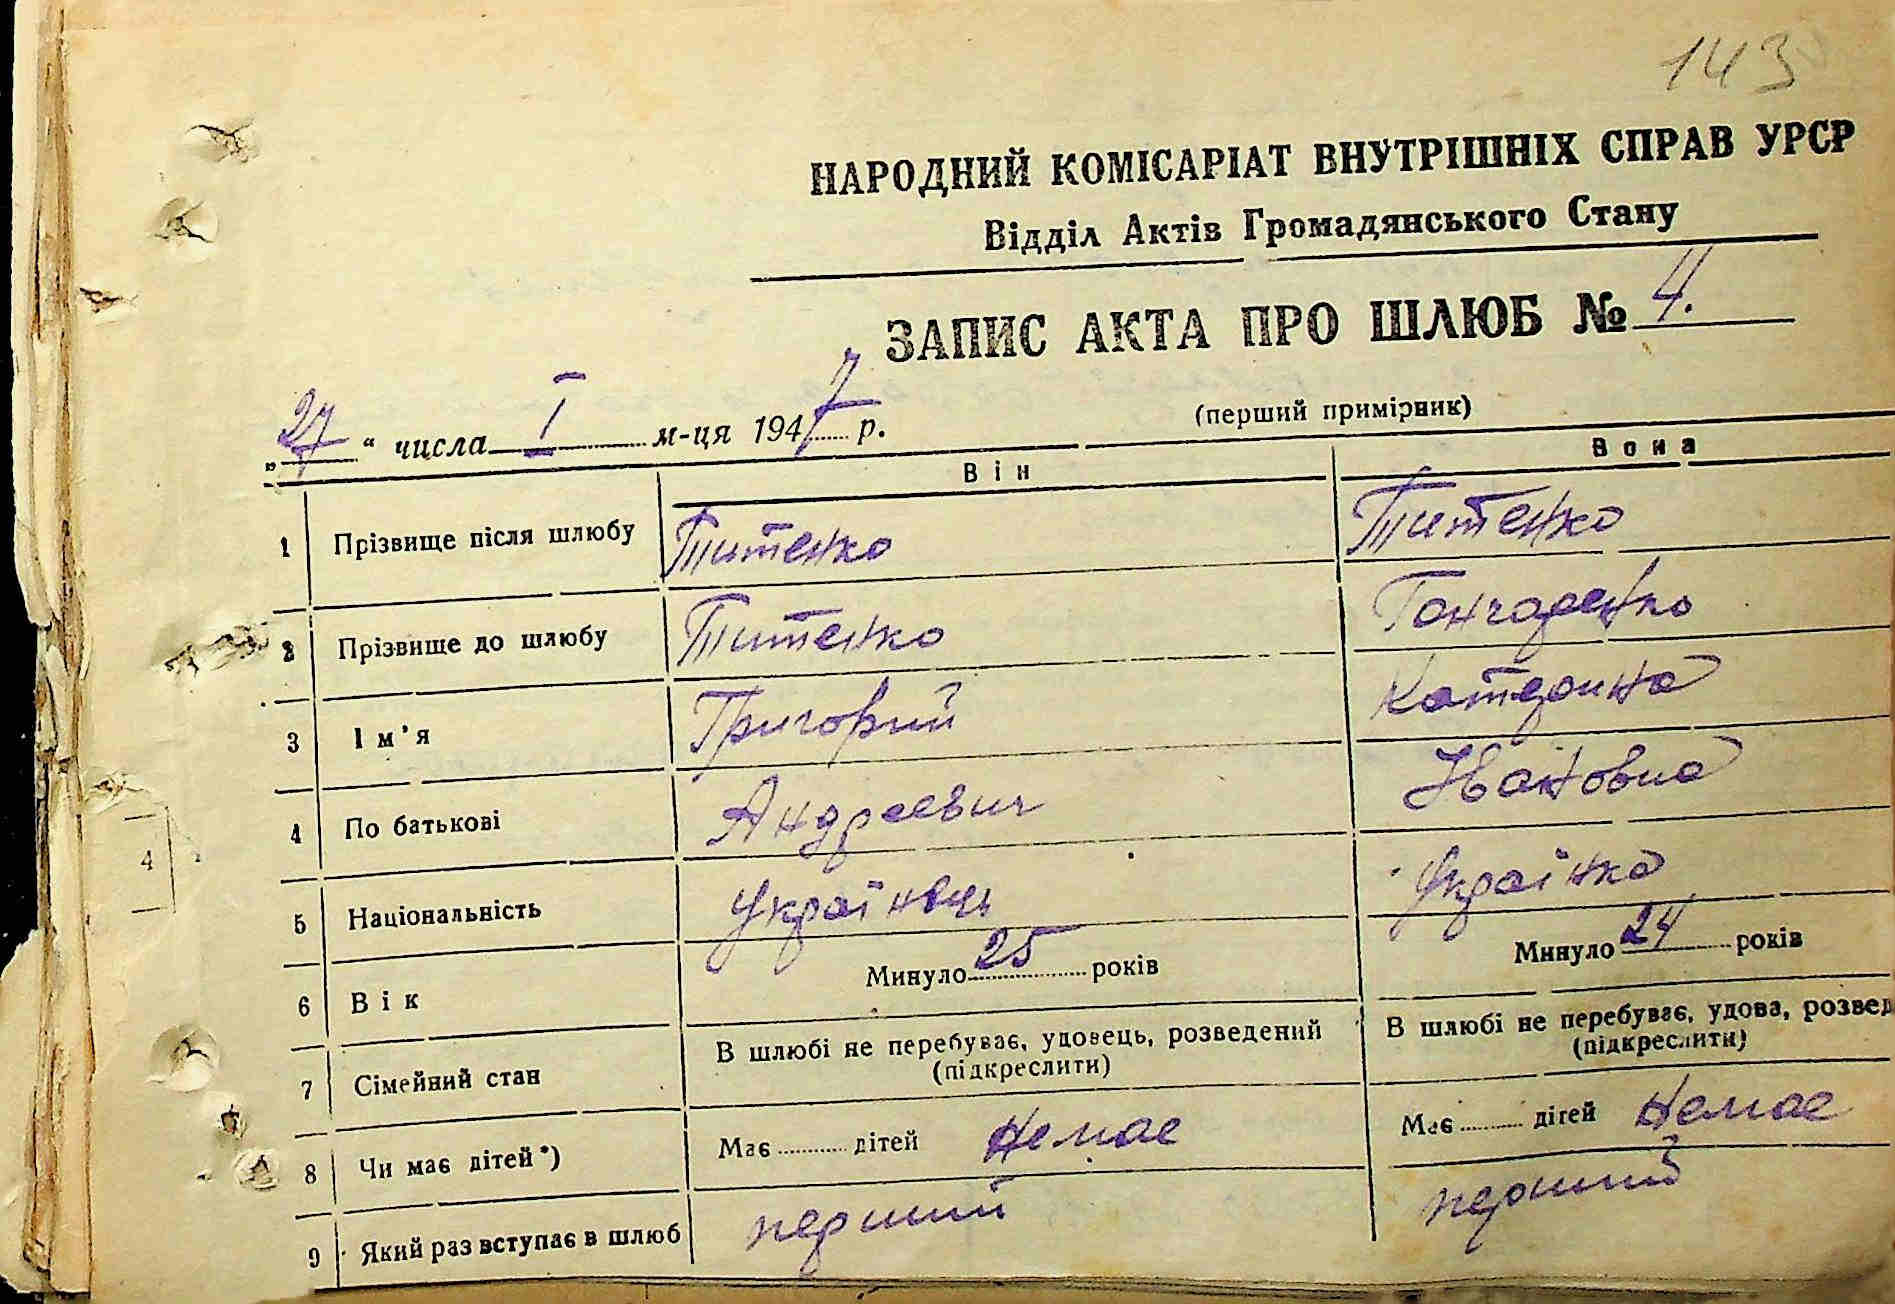 143
НАРОДНИЙ КОМІСАРІАТ ВНУТРІШНІХ СПРАВ УРСР
Відділ Актів Громадянського Стану
ЗАПИС АКТА ПРО ШЛЮБ № 4.
„27“ числа I м-ця 1947 р. (перший примірник)
Він Вона
1 Прізвище після шлюбу Титенко Титенко
2 Прізвище до шлюбу Титенко Гончаренко
3 Ім'я Григорий Катерина
4 По батькові Андреевич Ивановна
5 Національність Українець Українка
6 Вік Минуло 25 років Минуло 24 років
7 Сімейний стан В шлюбі не перебуває, удовець, розведений (підкреслити) В шлюбі не перебуває, удова, розвед (підкреслити)
8 Чи має дітей*) Має дітей Немає Має дітей Немає
9 Який раз вступає в шлюб перший перший
4